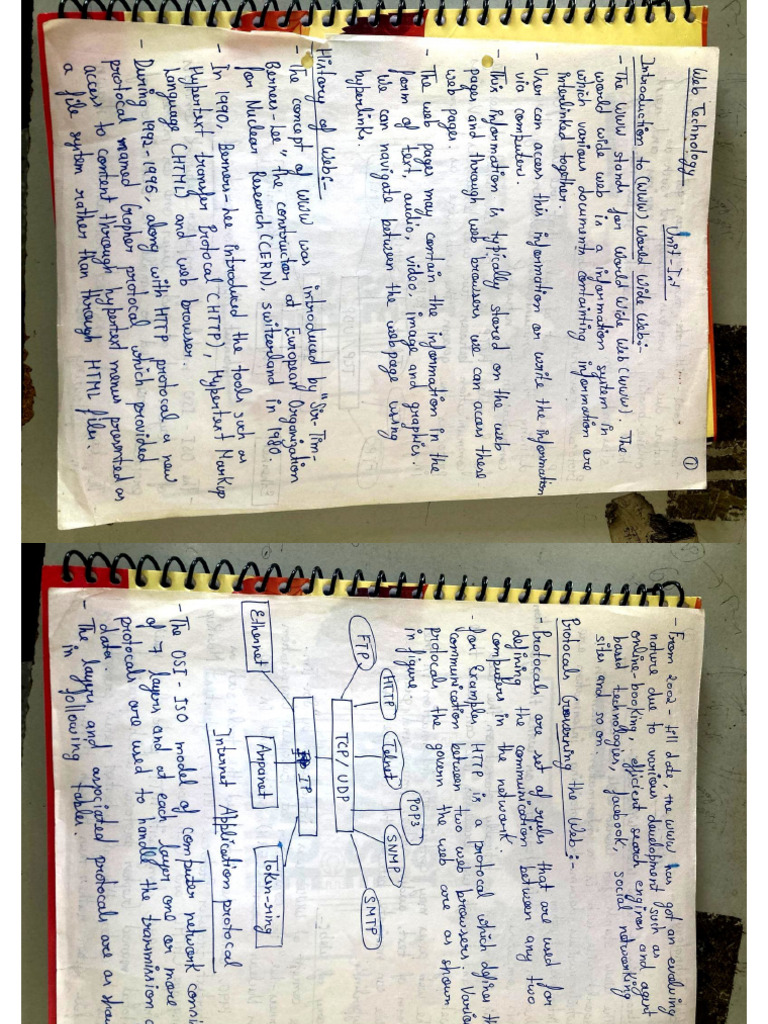 Web Technology
Unit-Int
①
Introduction to (WWW) World Wide Web:-
- The WWW stands for World Wide Web (WWW). The
world wide web is a information system in
which various documents containting information are
interlinked together.
- User can access this information or write the information
via computer.
- This information is typically stored on the web
pages and through web browsers we can access these
web pages.
- The web pages may contain the information in the
form of text, audio, video, image and graphics.
We can navigate between the webpage using
hyperlinks.
History of Web:-
- The concept of WWW was introduced by "Sir-Tim-
Berners-Lee", the contructor at European Organization
for Nuclear Research (CERN), switzerland in 1980.
- In 1990, Berners-Lee introduced the tools such as
Hypertext transfer Protocal (HTTP), Hypertext Markup
language (HTML) and web browser.
- During 1992-1995, along with HTTP protocal a new
protocal named Gropher protocal which provided
access to content through hypertext menus presented as
a file system rather than through HTML files.
- From 2002 - till date, the WWW has got an evolving
nature due to various development such as
online-booking, efficient search engines and agent
based technologies, facbook, social networking
sites and so on.
Protocals Governing the Web:-
- Protocals are set of rules that are used for
defining the communication between any two
computers in the network.
- for Example, HTTP is a protocal which defines th
communication between two web browsers. Variou
protocals the govern the web are as shown
in figure.
FTP
HTTP
Telnet
POP3
SNMP
SMTP
TCP/UDP
IP
Ethernet
Arpanet
Token-ring
Internet Application protocal
- The OSI-ISO model of computer network consi
of 7 layers and at each layer one or more
protocals are used to handle the transmission o
data.
- The layers and associated protocals are as show
in following tables.